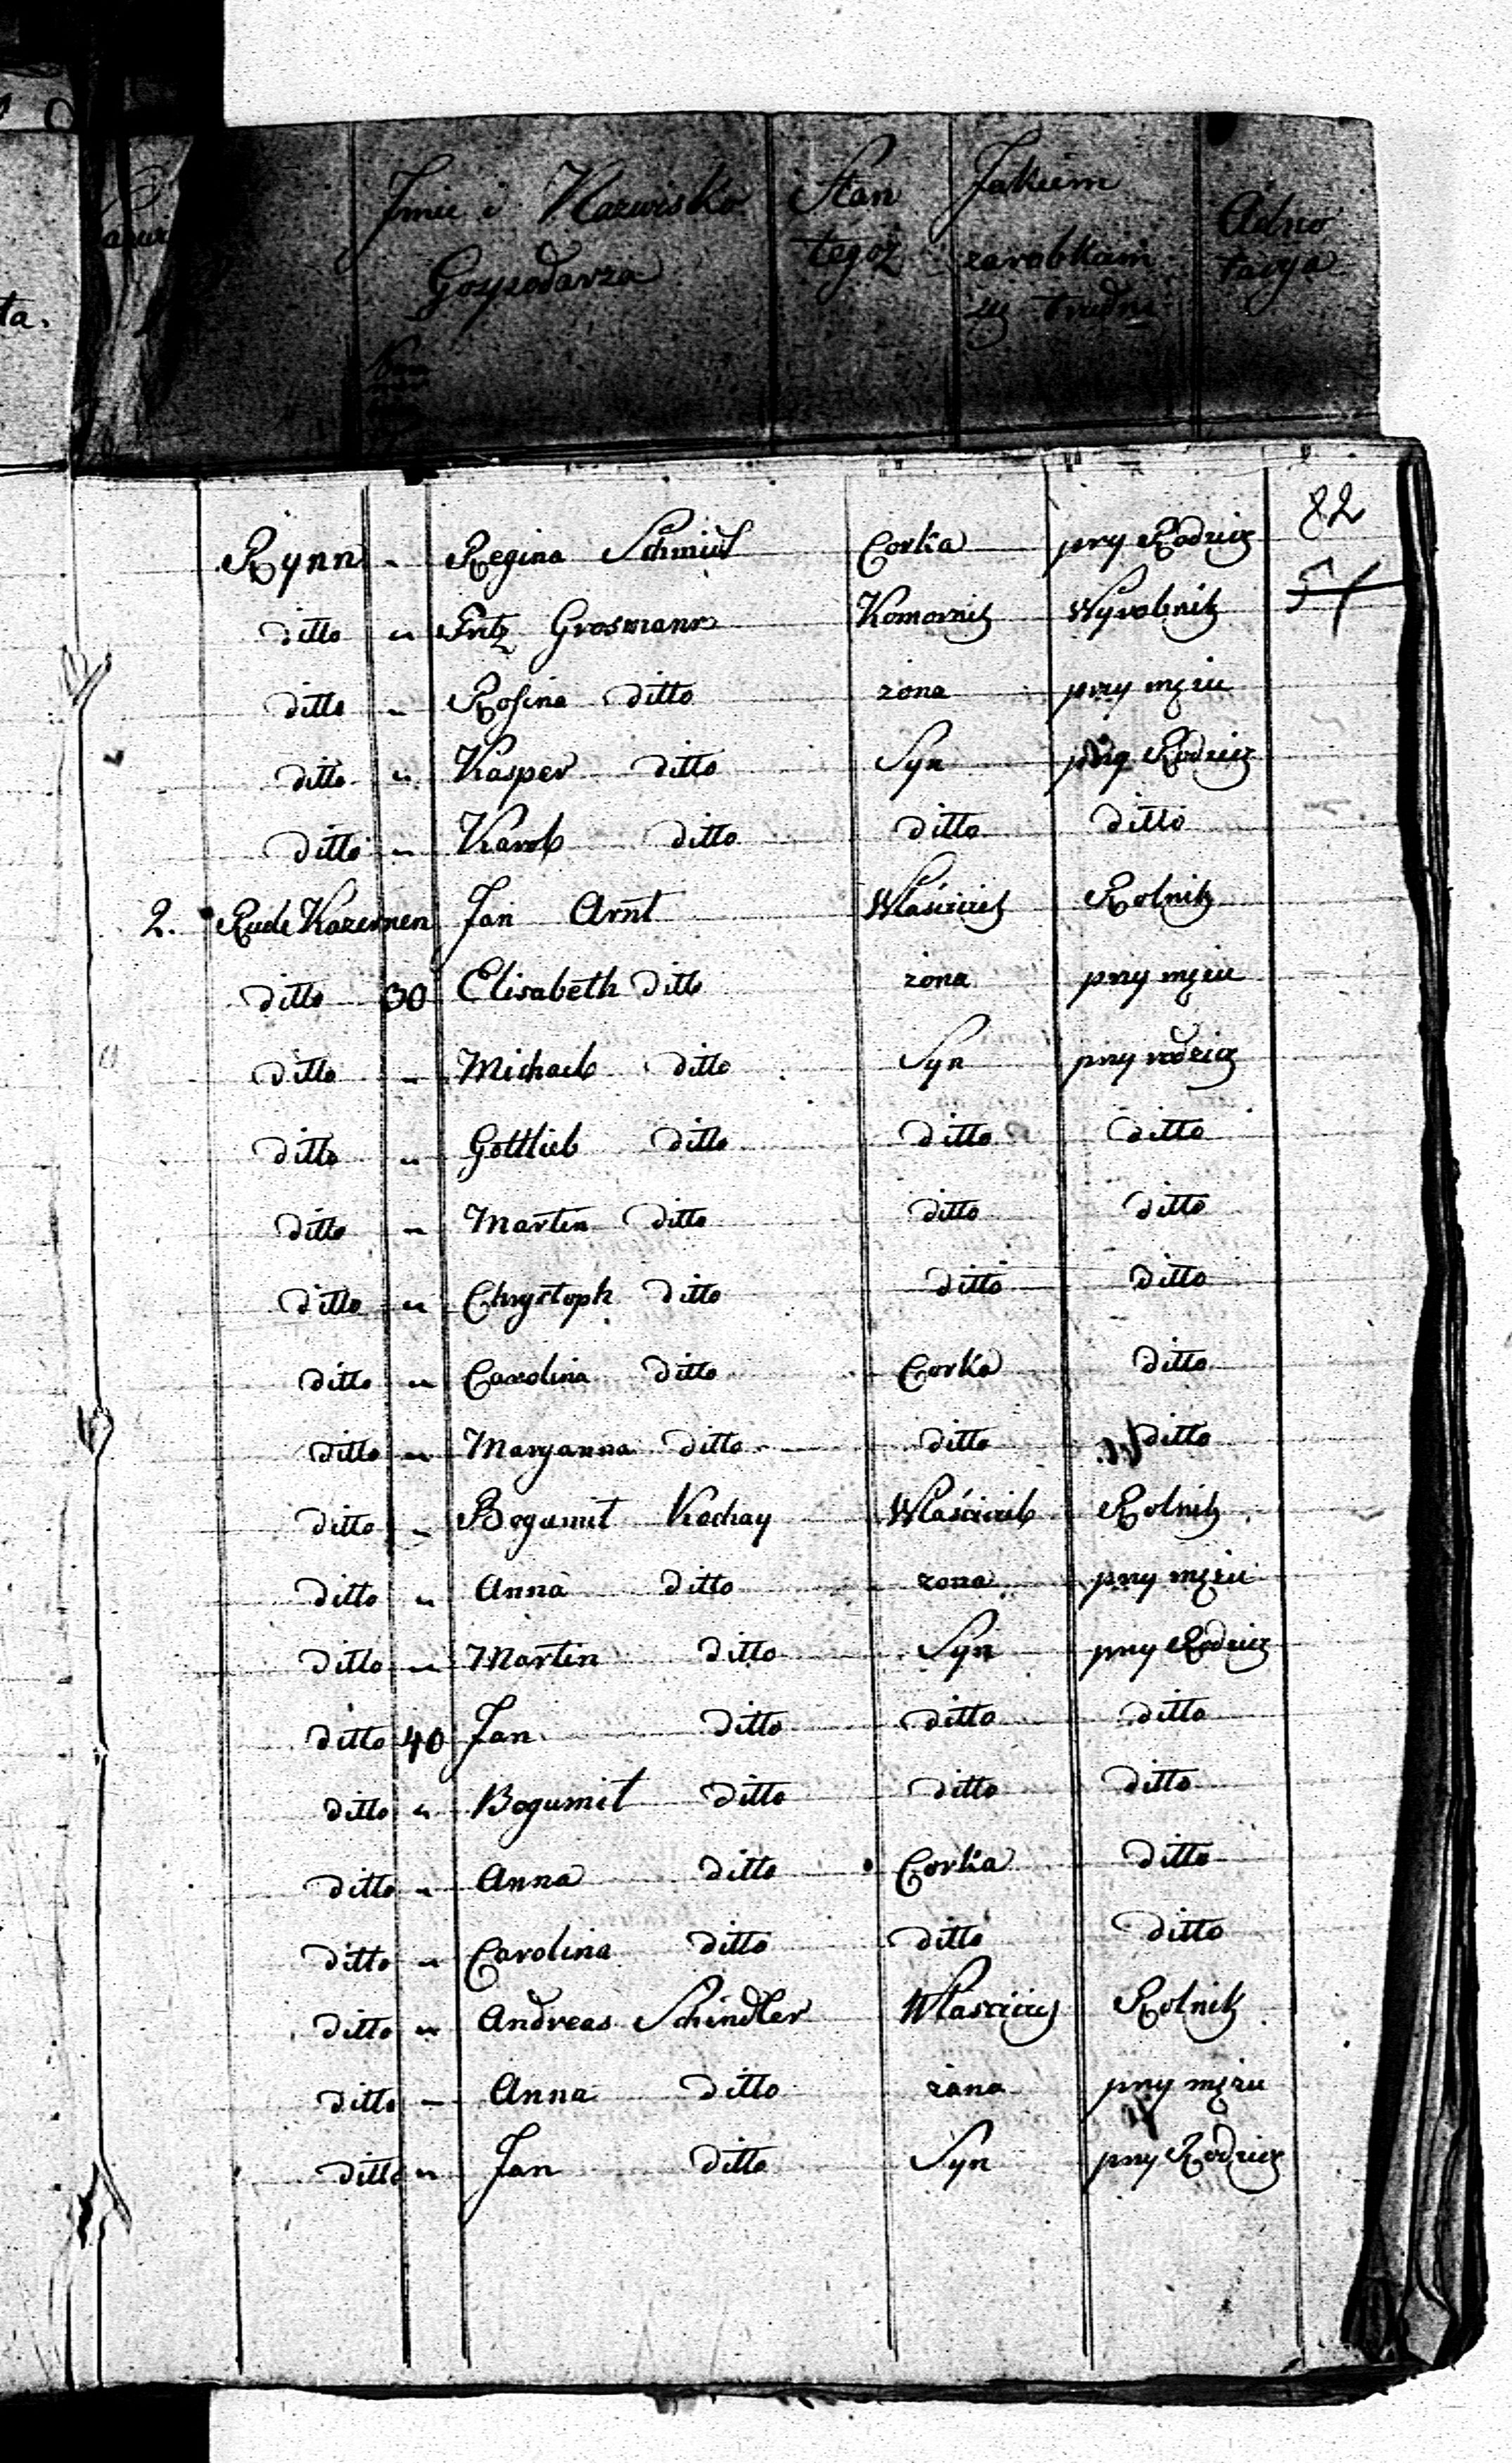 ta.
Jmie i Nazwisko Gospodarza
Stan tegoż
Jakiem zarobkiem się trudni
Adno tacya
82
51
Rynn " Regina Schmidt Corka przy Rodzica
ditto " Fritz Grosmann Komornik Wyrobnik
ditto " Rosina ditto zona przy mężu
ditto " Kasper ditto Syn przy Rodzica
ditto " Karol ditto ditto ditto
2. Rude Kazernen Jan Arnt Właściciel Rolnik
ditto 30 Elisabeth ditto żona przy mężu
ditto " Michael ditto Syn przy rodzica
ditto " Gottlieb ditto ditto ditto
ditto " Martin ditto ditto ditto
ditto " Chrystoph ditto ditto ditto
ditto " Carolina ditto Corka ditto
ditto " Maryanna ditto ditto ditto
ditto " Bogumił Kochay Właściciel Rolnik
ditto " Anna ditto zona przy mężu
ditto " Martin ditto Syn przy Rodzica
ditto 40 Jan ditto ditto ditto
ditto " Bogumił ditto ditto ditto
ditto " Anna ditto Corka ditto
ditto " Carolina ditto ditto ditto
ditto " Andreas Schindler Właściciel Rolnik
ditto " Anna ditto zona przy mężu
ditto " Jan ditto Syn przy Rodzica